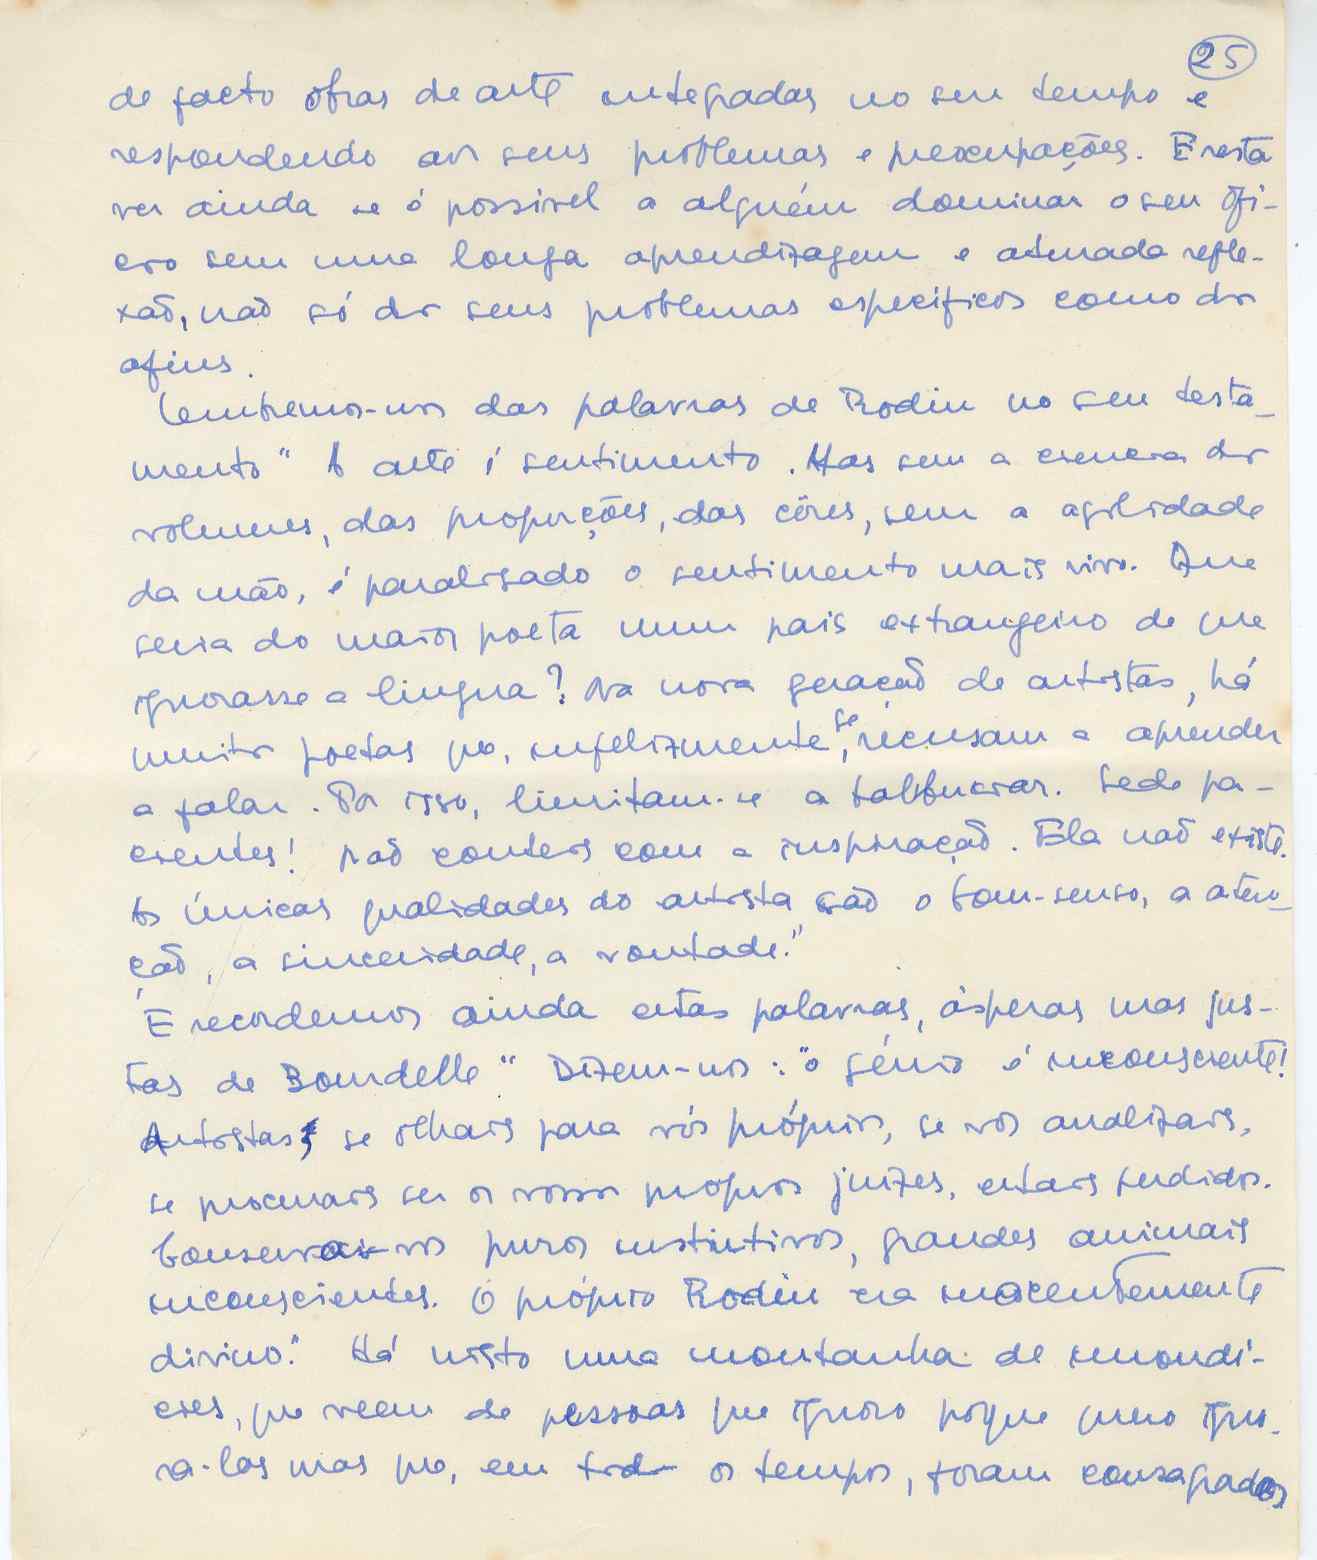 25
de facto obras de arte integradas no seu tempo e
respondendo aos seus problemas e preocupações. E resta
ver ainda se é possivel a alguém dominar o seu ofi-
cio sem uma longa aprendizagem e aturada refle-
xão, não só dos seus problemas especificos como dos
afins.
Lembremos-nos das palavras de Rodin no seu testa-
mento " A arte é sentimento. Mas sem a ciencia dos
volumes, das proporções, das côres, sem a agilidade
da mão, é paralisado o sentimento mais vivo. Que
seria do maior poeta num pais extrangeiro de que
ignorasse a lingua? Na nova geração de artistas, há
muitos poetas que, infelizmente, se recusam a aprender
a falar. Por isso, limitam-se a balbuciar. Sede pa-
cientes! Não conteis com a inspiração. Ela não existe.
As únicas qualidades do artista são o bom-senso, a aten-
ção, a sinceridade, a vontade."
E recordemos ainda estas palavras, ásperas mas jus-
tas de Bourdelle " Dizem-nos: "o génio é inconsciente!
Artistas, se olhais para vós próprios, se vos analizais,
se procurais ser os vossos proprios juizes, estais perdidos.
Conservai-vos puros instintivos, grandes animais
inconscientes. O próprio Rodin era inocentemente
divino." Há nisto uma montanha de imondi-
cies, que veem de pessoas que ignoro porque quero igno-
ra-las mas que, em todos os tempos, foram consagrados